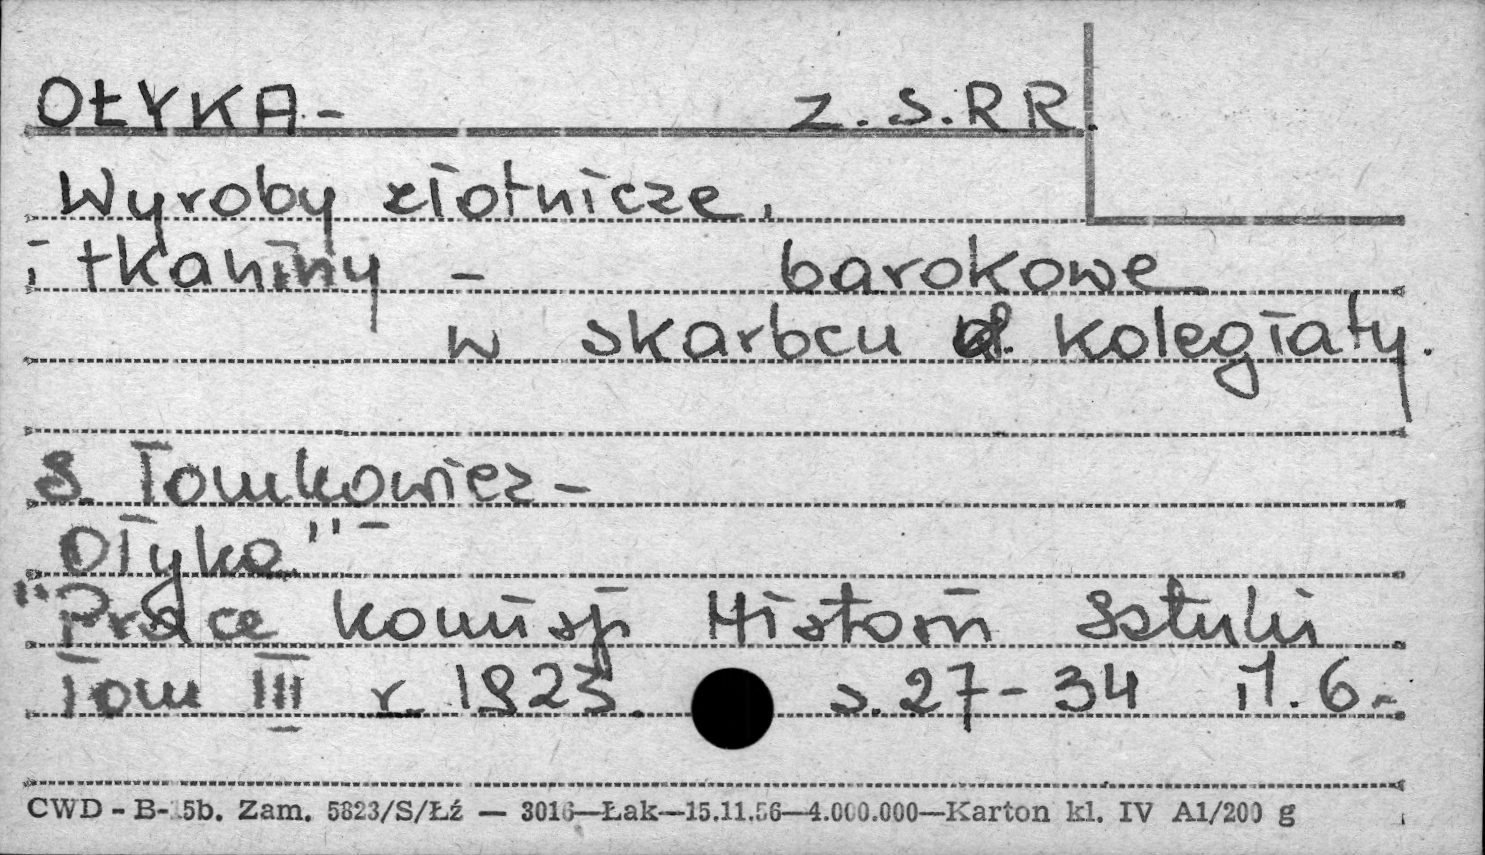 OŁYKA - Z.S.R R.
Wyroby złotnicze,
i tkaniny - barokowe
w skarbcu kolegiaty.
S. Tomkowicz -
Ołyka" -
"Prace Komisji Historii Sztuki
Tom III r. 1923. s. 27-34 il. 6.-
CWD - B-15b. Zam. 5823/S/Łź — 3016—Łak—15.11.56—4.000.000—Karton kl. IV A1/200 g